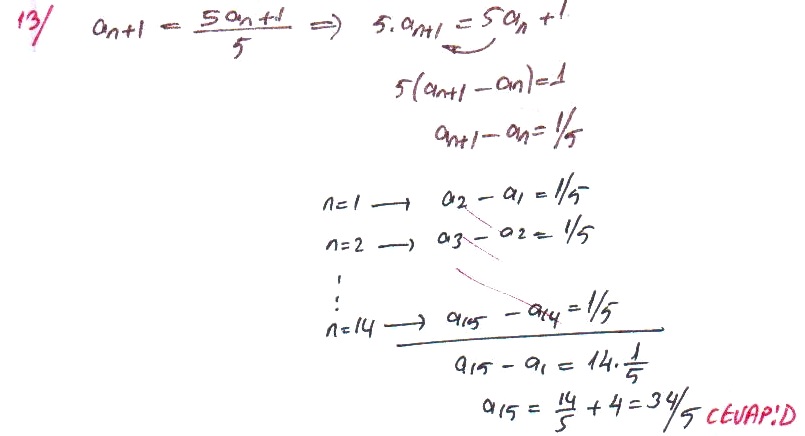 13/ aₙ₊₁ = (5aₙ+1)/5 ⇒ 5.aₙ₊₁ = 5aₙ+1
5(aₙ₊₁ - aₙ)=1
aₙ₊₁ - aₙ = 1/5
n=1 → a₂ - a₁ = 1/5
n=2 → a₃ - a₂ = 1/5
⋮
n=14 → a₁₅ - a₁₄ = 1/5
a₁₅ - a₁ = 14.1/5
a₁₅ = 14/5 + 4 = 34/5 CEVAP:D